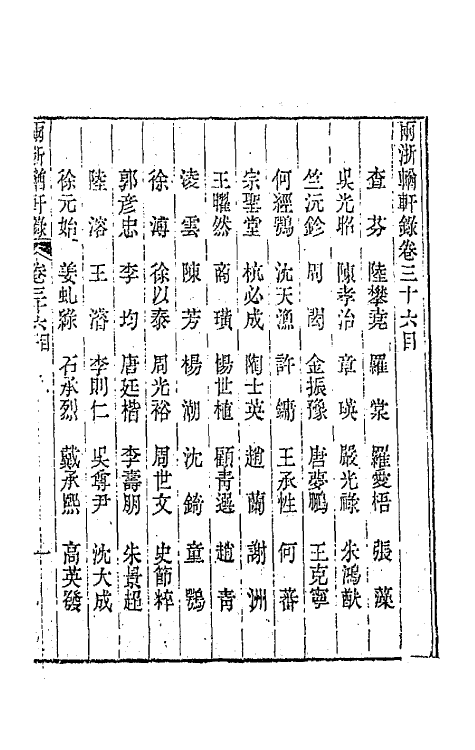 兩浙輶軒錄卷三十六目
查芬　陸攀堯　羅棠　羅愛梧　張藻
吳光昭　陳孝治　章瑛　嚴光祿　朱鴻猷
竺沅鉁　周閎　金振豫　唐夢鵬　王克寧
何經鶚　沈天漁　許鏞　王承性　何蕃
宗聖堂　杭必成　陶士英　趙蘭　謝洲
王曜然　商璜　楊世植　顧青選　趙青
淩雲　陳芳　楊潮　沈錡　童鶚
徐溥　徐以泰　周光裕　周世文　史節粹
郭彥忠　李均　唐廷楷　李壽朋　朱景超
陸溶　王濬　李則仁　吳尊尹　沈大成
徐元始　姜虬綠　石承烈　戴承熙　高英發
兩浙輶軒錄　卷三十六目　一